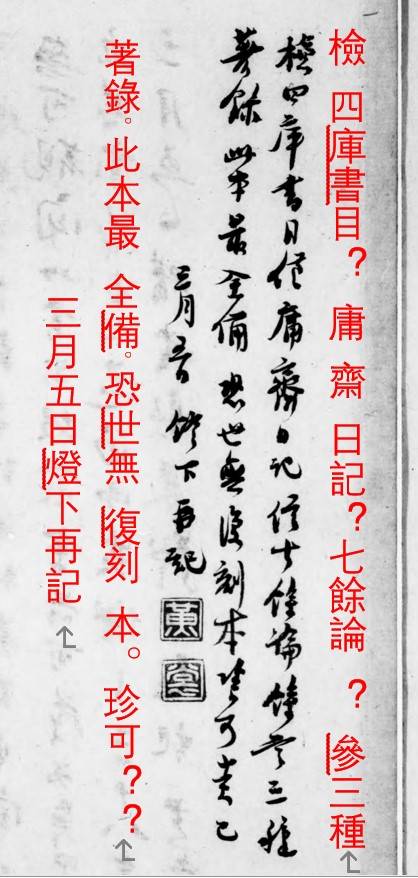 檢四庫書目？庸齋日記？七餘論？參三種
檢四庫書目僅庸齋日記信古餘論餘言三種
著錄此本最全備恐世無復刻本可已
三月五日燈下再記
黃裳
著錄。此本最全備。恐世無復刻本。珍可？？
三月五日燈下再記